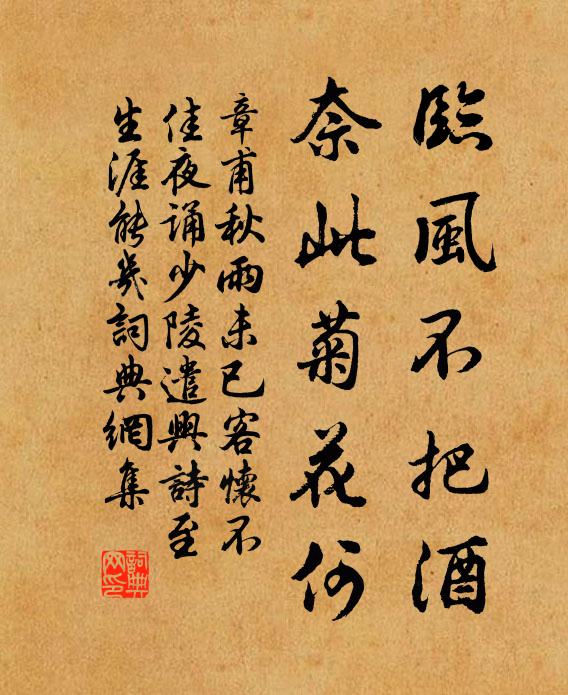 臨風不把酒
奈此菊花何
章甫秋雨未已客懷不
佳夜誦少陵遣興詩至
生涯能幾詞典網集
詞典
网印